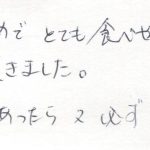 めで とても 食べせ
きました。
あったら 又 必ず